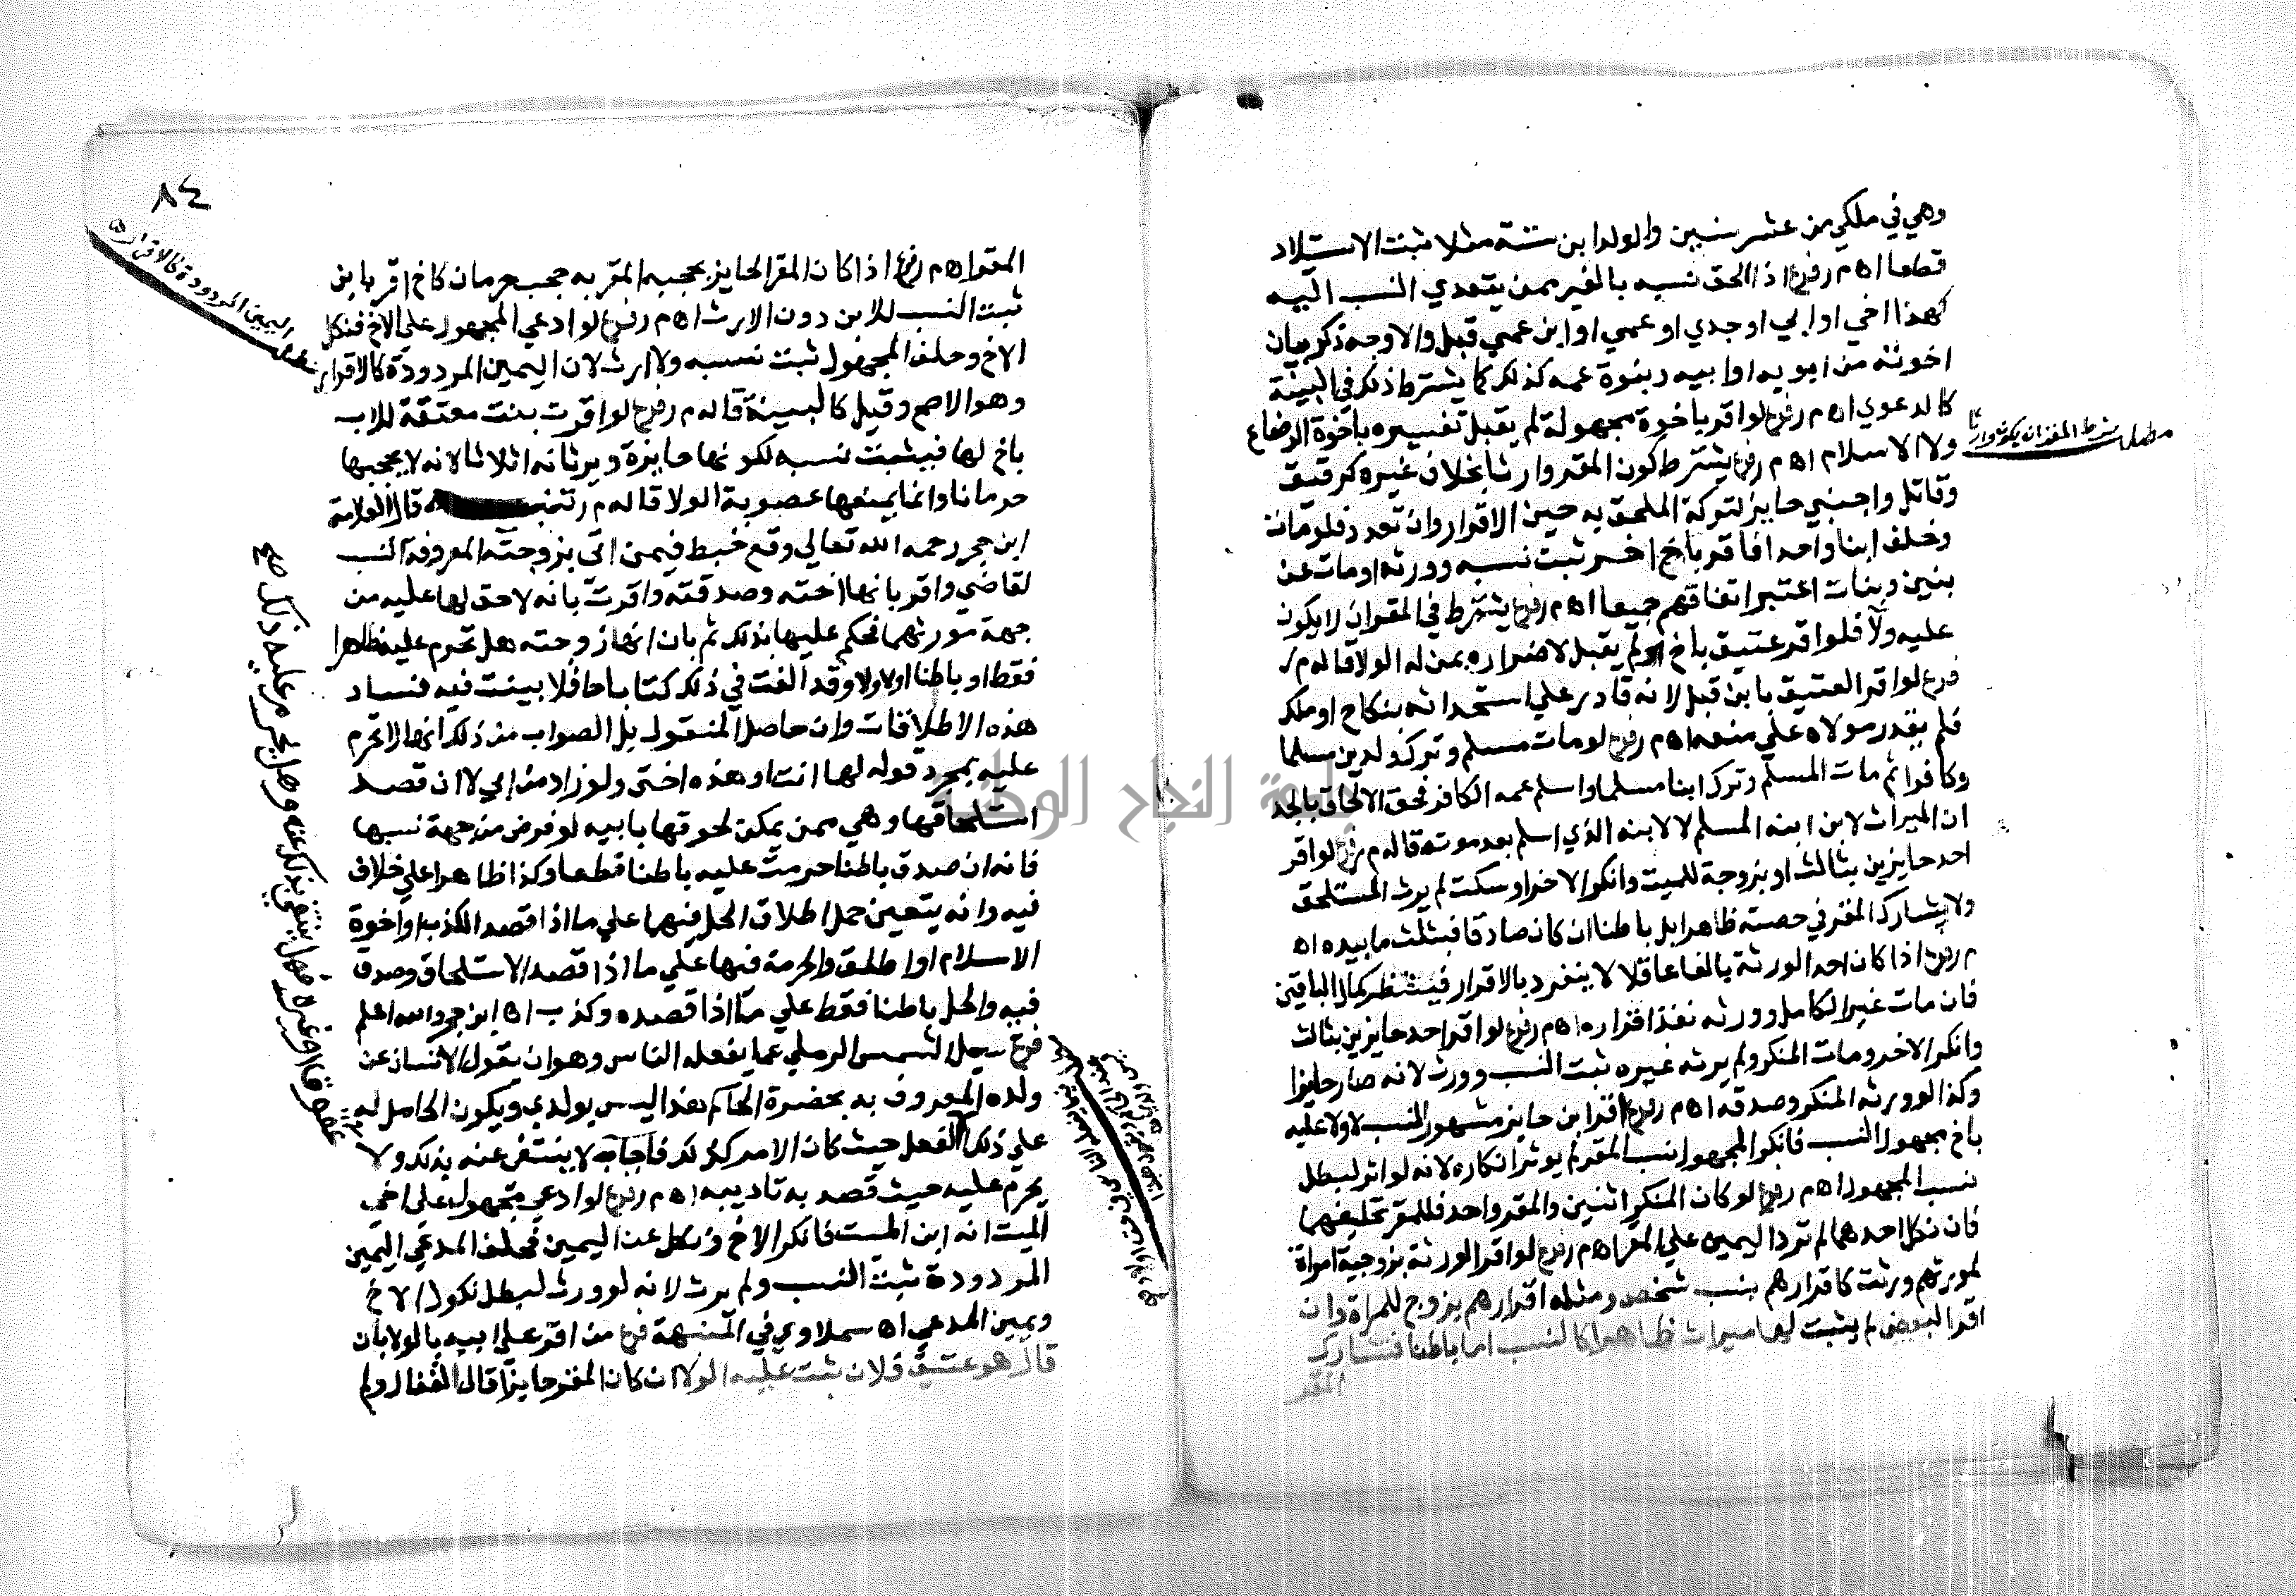 وهي في ملكي من عشر سنين والولد ابن سنة مثلا ثبت الاستلاد
قطعا اه م ر فرع اذا الحق نسبه بالغير ممن يتعدي النسب اليه
كهذا اخي او ابي او جدي او عمي او ابن عمي قبل والاوجه ذكر بيان
اخوته من ابويه او ابيه وبنوة عمه كذلك كما يشترط ذلك في البينة
كالدعوي اه م ر فرع لو اقر باخوة مجهولة لم يقبل تفسيره باخوة الرضاع
ولا الاسلام اه م ر فرع يشترط كون المقر وارثا بخلاف غيره كرقيق
وقاتل واجنبي حايز لتركة الملحق به حين الاقرار وان تعدد فلو مات
وخلف ابنا واحدا فاقر باخ اخر ثبت نسبه وورثه او مات عن
بنين وبنات اعتبر اتفاقهم جميعا اه م ر فرع يشترط في المقر ان لا يكون
عليه ولا فلو اقر عتيق باخ لم يقبل لاضراره بمن له الولا قاله م ر
فرع لو اقر العتيق بابن قبل لانه قادر علي استحداثه بنكاح او ملك
فلم يقدر مولاه علي منعه اه م ر فرع لو مات مسلم وترك ولدين مسلما
وكافرا ثم مات المسلم وترك ابنا مسلما واسلم عمه الكافر فحق الالحاق بالجد
ان الميراث لابن ابنه المسلم لا لابنه الذي اسلم بعد موته قاله م ر فرع لو اقر
احد حايزين بثالث او بزوجة للميت وانكر الاخر او سكت لم يرث المستلحق
ولا يشارك المقر في حصته ظاهرا بل باطنا ان كان صادقا فبثلث ما بيده اه
م ر فرع اذا كان احد الورثة بالغا عاقلا لا ينفرد بالاقرار فينتظر كمال الباقين
فان مات غير الكامل وورثه نفذ اقراره اه م ر فرع لو اقر احد حايزين بثالث
وانكر الاخر ومات المنكر ولم يرثه غيره ثبت النسب وورث لانه صار حايزا
وكذا لو ورثه المنكر وصدقه اه م ر فرع اقر ابن حايز مشهور النسب لا ولا عليه
باخ مجهول النسب فانكر المجهول نسب المقر لم يوثر انكاره لانه لو اثر لبطل
نسب المجهول اه م ر فرع لو كان المنكر اثنين والمقر واحد فللمقر تحليفهما
فان نكل احدهما لم ترد اليمين علي المقر اه م ر فرع لو اقر الورثة بزوجية امراة
لمورثهم ورثت كاقرارهم بنسب شخص ومثله اقرارهم بزوج للمراة وان
اقر البعض لم يثبت لها ميراث ظاهرا كالنسب اما باطنا فتشارك
المقر
مطلب شرط المقر ان يكون وارثا
٨٤
المقر اه م ر فرع اذا كان المقر الحايز يحجبه المقر به حجب حرمان كاخ اقر بابن
ثبت النسب للابن دون الارث اه م ر فرع لو ادعي المجهول علي الاخ فنكل
الاخ وحلف المجهول ثبت نسبه ولا ارث لان اليمين المردودة كالاقرار
وهو الاصح وقيل كالبينة قاله م ر فرع لو اقرت بنت معتقة للاب
باخ لها فيثبت نسبه لكونها حايزة ويرثانه اثلاثا لانه لا يحجبها
حرمانا وانما يمنعها عصوبة الولا قاله م ر تنبيه قال العلامة
ابن حجر رحمه الله تعالي وقع خبط فيمن اتى بزوجته المعروفة النسب
لقاضي واقر بانها اخته وصدقته واقرت بانه لا حق لها عليه من
جهة مورثهما فحكم عليها بذلك ثم بان انها زوجته هل تحرم عليه ظاهرا
فقط او باطنا او لا ولا وقد الفت في ذلك كتابا حافلا بينت فيه فساد
هذه الاطلاقات وان حاصل المنقول بل الصواب من ذلك انها لا تحرم
عليه بمجرد قوله لها انت او هذه اختي ولو زاد من ابي لا ان قصد
استلحاقها وهي ممن يمكن لحوقها بابيه لو فرض من جهة نسبها
فانه ان صدق باطنا حرمت عليه باطنا قطعا وكذا ظاهرا علي خلاف
فيه وانه يتعين حمل اطلاق الحل فيها علي ما اذا قصد الكذب او اخوة
الاسلام او اطلق والحرمة فيها علي ما اذا قصد الاستلحاق وصدق
فيه والحل باطنا فقط علي ما اذا قصده وكذب اه ابن حجر والله اعلم
فرع سيل الشمس الرملي عما يفعله الناس وهو ان يقول الانسان عن
ولده المعروف به بحضرة الحاكم هذا ليس بولدي ويكون الحامل له
علي ذلك الفعل حيث كان الامر كذلك فاجاب لا ينتفي عنه بذلك ولا
يحرم عليه حيث قصد به تاديبه اه م ر فرع لو ادعي مجهول علي اخي
الميت انه ابن الميت فانكر الاخ ونكل عن اليمين فحلف المدعي اليمين
المردودة ثبت النسب ولم يرث لانه لو ورث لبطل نكول الاخ
ويمين المدعي اه سملاوي في المنهية فرع من اقر علي ابيه بالولا بان
قال هو عتيق فلان ثبت عليه الولا ان كان المقر حايزا قال القفال ولم
اليمين المردودة كالاقرار
فهل ينتفي بذلك عنه وهل يحرم عليه ذلك صح